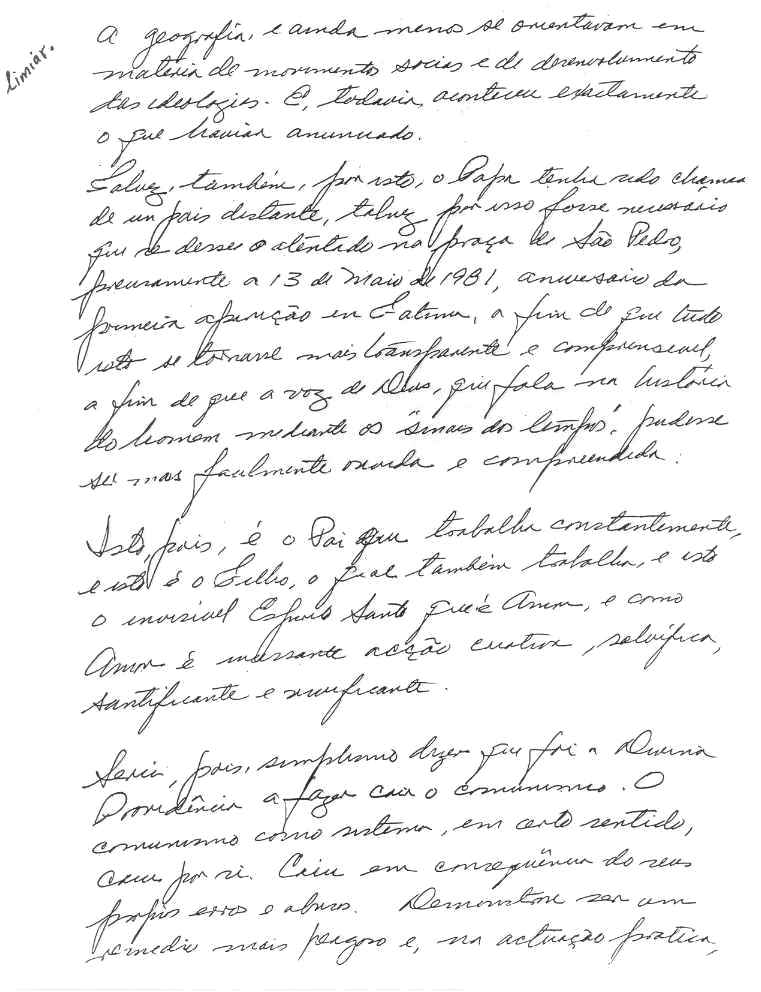 Limiar.
a geografia, e ainda menos se orientavam em
matéria de movimentos sociais e de desenvolvimento
das ideologias. E, todavia, aconteceu exactamente
o que haviam anunciado.
Talvez, também, por isto, o Papa tenha sido chamado
de un país distante, talvez por isso fosse necessário
que se desse o atentado na praça de São Pedro,
precisamente a 13 de Maio de 1981, aniversário da
primeira aparição en Fatima, a fim de que tudo
isto se tornasse mais transparente e comprensivel,
a fim de que a voz de Deus, que fala na história
do homem mediante os "sinais dos tempos", pudesse
ser mais facilmente ouvida e compreendida.
Isto, pois, é o Pai que trabalha constantemente,
e isto é o Filho, o qual também trabalha, e isto
o invisivel Espirito Santo que é Amor, e como
Amor é incessante acção criativa, salvifica,
santificante e vivificante.
Seria, pois, simplismo dizer que foi a Divina
Providência a fazer cair o comunismo. O
comunismo como sistema, em certo sentido,
caiu por si. Caiu em conseqüência do seus
própios erros e abusos. Demonstrou ser um
remedio mais perigoso e, na actuação pratica,